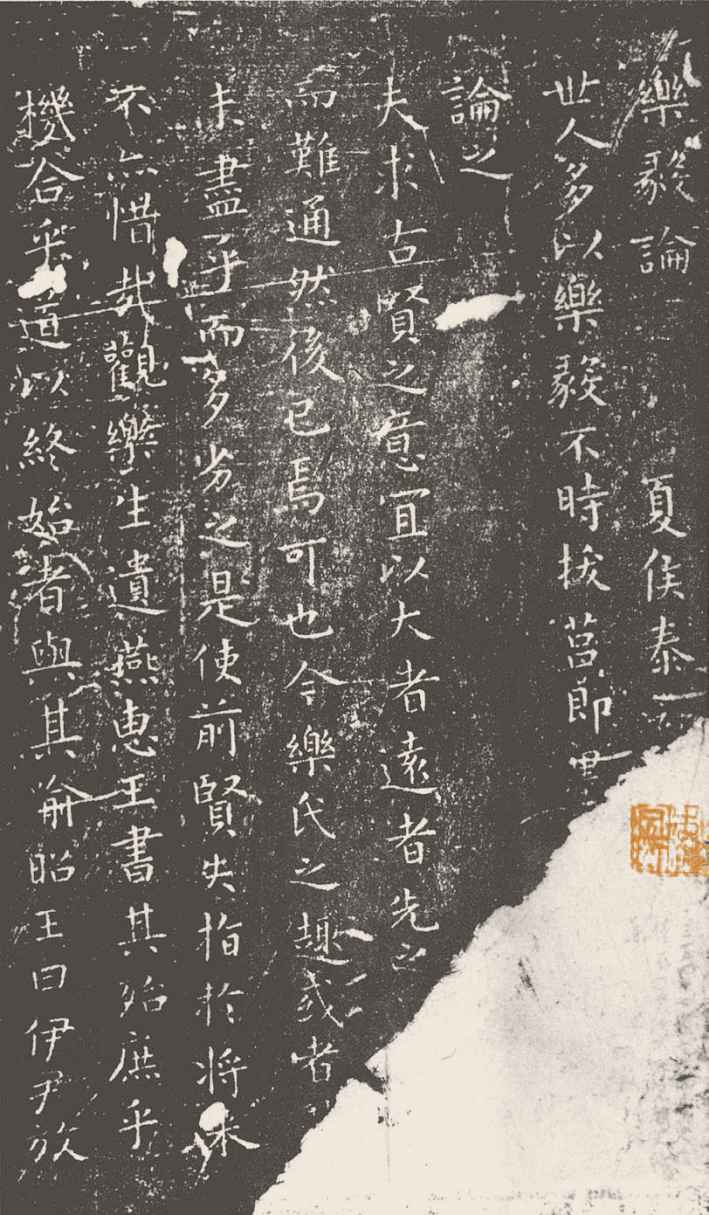 樂毅論 夏侯泰
世人多以樂毅不時拔莒即墨
論之
夫求古賢之意宜以大者遠者先之
而難通然後已焉可也今樂氏之趣或者
未盡乎而多劣之是使前賢失指於將來
不亦惜哉觀樂生遺燕惠王書其殆庶乎
機合乎道以終始者與其喻昭王曰伊尹放